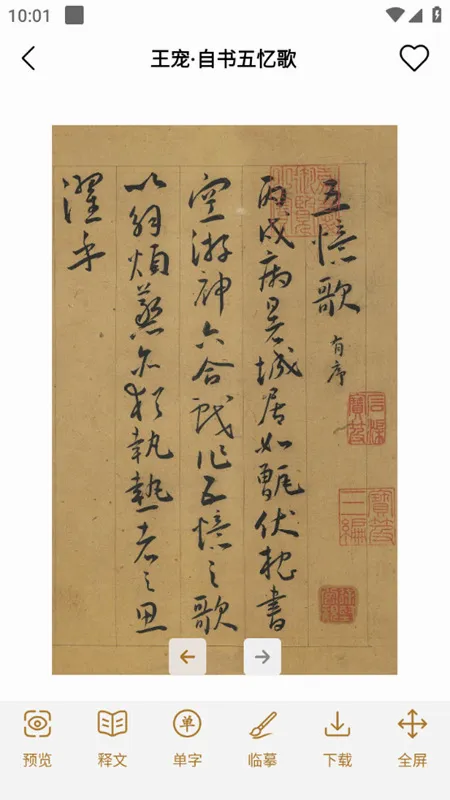 10:01
王宠·自书五忆歌
五憶歌 有序
丙戌病暑城居如甑伏枕書
空游神六合戏作五憶之歌
以豁煩蒸亦猶執熱者之思
濯手
预览
释文
单
单字
临摹
下载
全屏